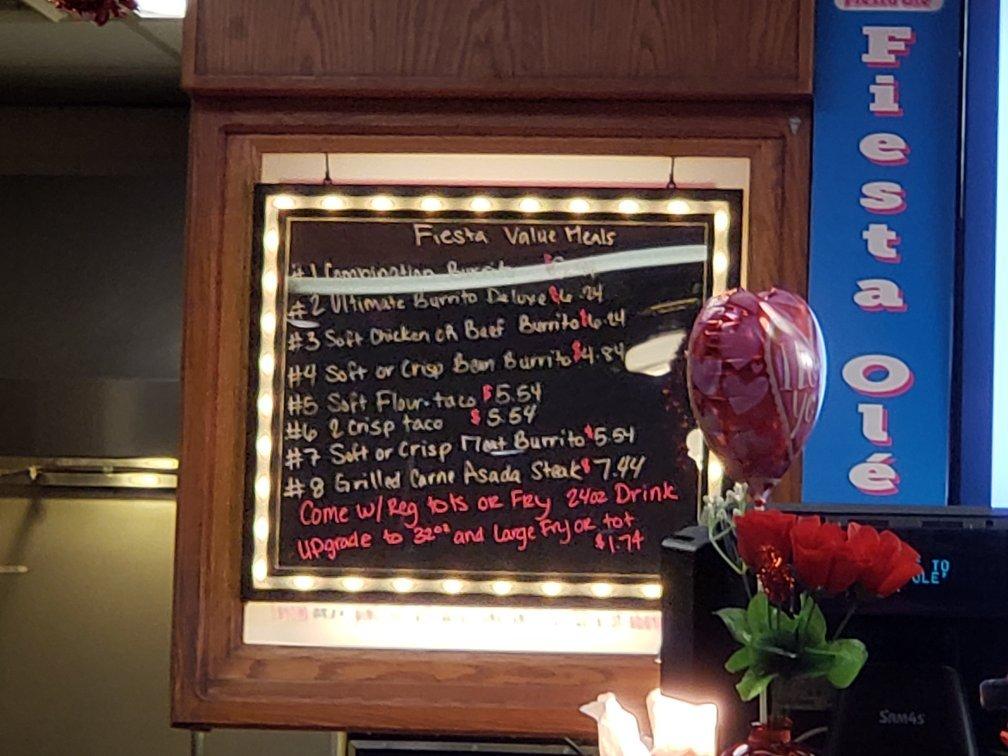 Fiesta Value Meals
#1 Combination Burrito
#2 Ultimate Burrito Deluxe $6.24
#3 Soft Chicken or Beef Burrito $6.24
#4 Soft or Crisp Bean Burrito $4.84
#5 Soft Flour taco $5.54
#6 2 crisp taco $5.54
#7 Soft or Crisp Meat Burrito $5.54
#8 Grilled Carne Asada Steak $7.44
Come w/ Reg tots or Fry 24oz Drink
upgrade to 32oz and Large Fry or tot
$1.74
Fiesta Olé
TO
SAM4S